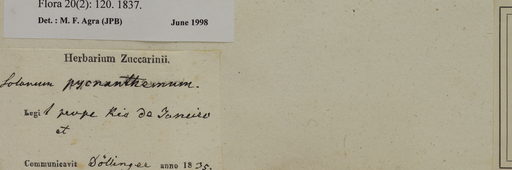 Flora 20(2): 120. 1837.
Det. : M. F. Agra (JPB) June 1998
Herbarium Zuccarinii.
Solanum pycnanthemum.
Legi prope Rio de Janeiro
et
Communicavit Döllinger anno 1835.